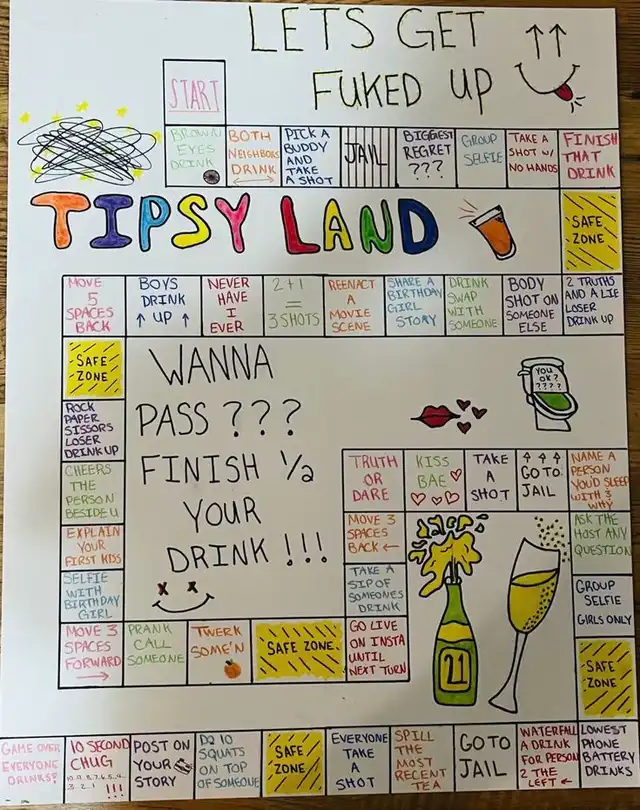 LETS GET
FUKED UP
START
BROWN
EYES
DRINK
BOTH
NEIGHBORS
DRINK
PICK A
BUDDY
AND
TAKE
A SHOT
JAIL
BIGGEST
REGRET
???
GROUP
SELFIE
TAKE A
SHOT W/
NO HANDS
FINISH
THAT
DRINK
TIPSY LAND
SAFE
ZONE
MOVE
5
SPACES
BACK
BOYS
DRINK
↑ UP ↑
NEVER
HAVE
I
EVER
2+1
=
3 SHOTS
REENACT
A
MOVIE
SCENE
SHARE A
BIRTHDAY
GIRL
STORY
DRINK
SWAP
WITH
SOMEONE
BODY
SHOT ON
SOMEONE
ELSE
2 TRUTHS
AND A LIE
LOSER
DRINK UP
SAFE
ZONE
ROCK
PAPER
SISSORS
LOSER
DRINK UP
CHEERS
THE
PERSON
BESIDE U
EXPLAIN
YOUR
FIRST KISS
SELFIE
WITH
BIRTHDAY
GIRL
MOVE 3
SPACES
FORWARD
→
WANNA
PASS ???
FINISH 1/2
YOUR
DRINK !!!
You
OK?
????
PRANK
CALL
SOMEONE
TWERK
SOME'N
SAFE ZONE
GO LIVE
ON INSTA
UNTIL
NEXT TURN
TAKE A
SIP OF
SOMEONES
DRINK
MOVE 3
SPACES
BACK ←
TRUTH
OR
DARE
KISS
BAE
TAKE
A
SHOT
↑ ↑ ↑
GO TO
JAIL
NAME A
PERSON
YOU'D SLEEP
WITH &
WHY
ASK THE
HOST ANY
QUESTION
GROUP
SELFIE
GIRLS ONLY
21
SAFE
ZONE
LOWEST
PHONE
BATTERY
DRINKS
WATERFALL
A DRINK
FOR PERSON
2 THE
LEFT ←
GO TO
JAIL
SPILL
THE
MOST
RECENT
TEA
EVERYONE
TAKE
A
SHOT
SAFE
ZONE
DO 10
SQUATS
ON TOP
OF SOMEONE
POST ON
YOUR
STORY
10 SECOND
CHUG
10..9..8..7..6..5..4..
3..2..1 !!!
GAME OVER
EVERYONE
DRINKS!